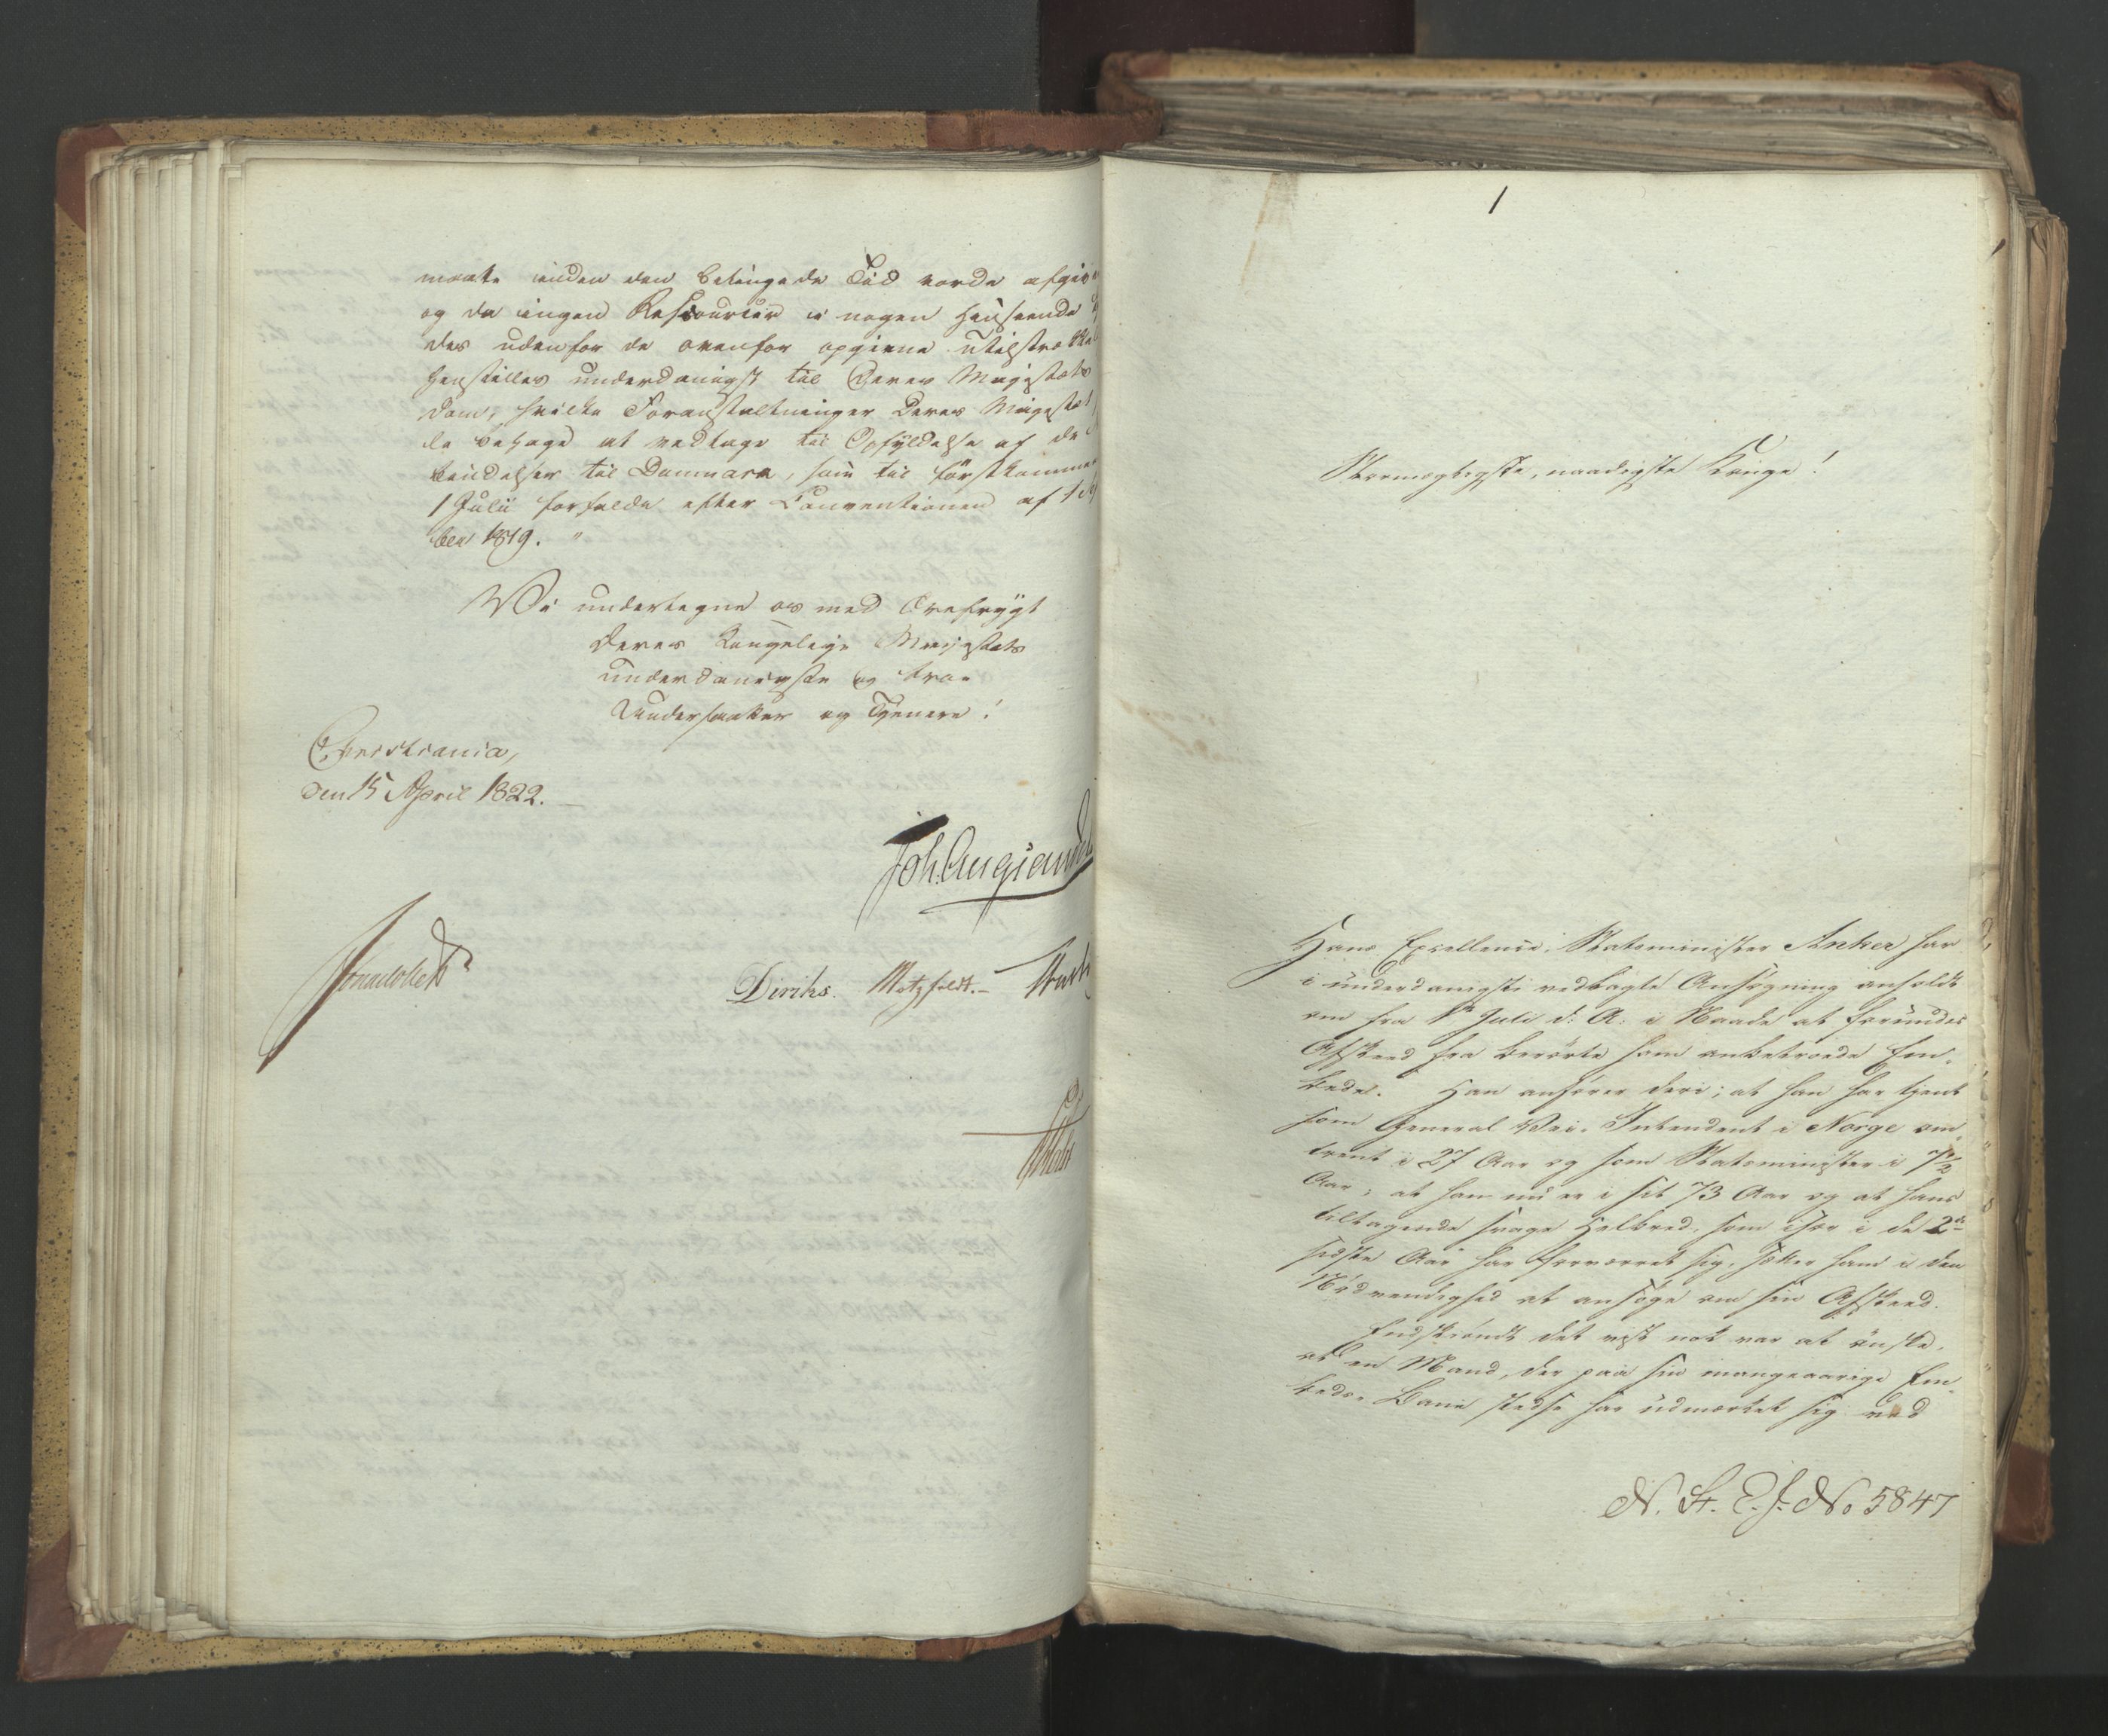 maatte inden den betingede Tid vorde afgiv
og da ingen Ressourcer i nogen Henseende
des udenfor de ovenfor opgivne utilstrækkel
henstilles underdanigst til Deres Majestæts
dom, hvilke Foranstaltninger Deres Majestæt
de behage at vedtage til Opfyldelse af de
bindelser til Danmark, som til førstkommen
1 Julii forfalde efter Conventionen af 1
ber 1819. "
Vi undertegne os med Ærefrygt
Deres Kongelige Majestæts
underdanigste og troe
Undersaatter og Tjenere!
Christiania,
den 15 April 1822.
Joh. Aug Sand
Jonas Collett
Diriks. Motzfeldt.
1
Stormægtigste, naadigste Konge!
Hans Excellence, Statsminister Anker har
i underdanigst vedlagte Ansøgning anholdt
om fra 1ste Juli d: A: i Naade at forundes
Afskeed fra berørte ham anbetroede Em-
bede. Han anfører deri; at han har tjent
som General Vei-Intendent i Norge om-
trent i 27 Aar og som Statsminister i 7½
Aar, at han nu er i sit 73 Aar og at hans
tiltagende svage Helbred, som især i de 2de
sidste Aar har forværret sig, sætter ham i den
Nødvendighed at ansøge om sin Afskeed.
Endskiøndt det vist nok var at ønske,
at en Mand, der paa sin mangeaarige Em-
beds-Bane stedse har udmærket sig ved
N. St. E. J. No 5847